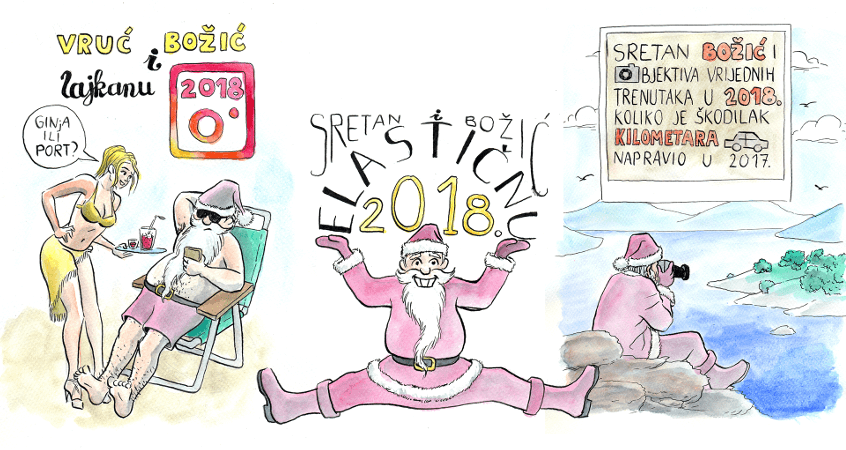 VRUĆ i BOŽIĆ
lajkanu
2018
GINJA
ILI
PORT?
SRETAN i BOŽIĆ
ELASTIČNU
2018.
SRETAN BOŽIĆ I
OBJEKTIVA VRIJEDNIH
TRENUTAKA U 2018.
KOLIKO JE ŠKODILAK
KILOMETARA
NAPRAVIO U 2017.